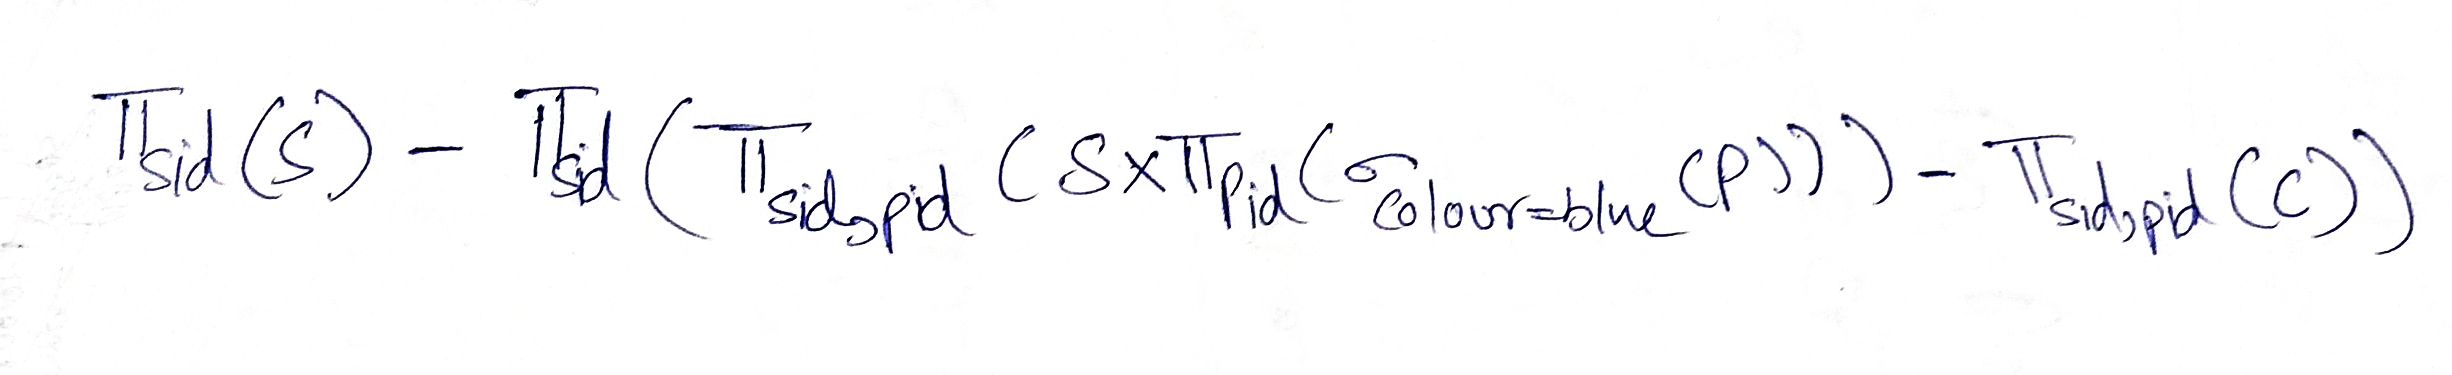 π_sid(S) − π_sid(π_sid,pid(S×π_Pid(σ_colour=blue(P))) − π_sid,pid(C))